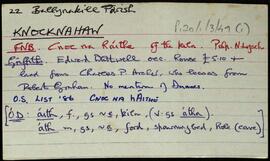 22 Ballynakill Parish
P.20/1/3/49 (i)
KNOCKNAHAW
FNB. Cnoc na háithe of the kiln.
Griffith. Edward Dettwell occ. House £5-10 +
land from Charles P. Archer, who leases from
Robert Graham. No mention of Dunmes.
O.S. LIST '86 CNOC NA HÁITHE
O.D: áith, f., gs ~e, kiln, (v. gs átha).
áth m, gs, ~a, ford, spawning bed, hole (cave)